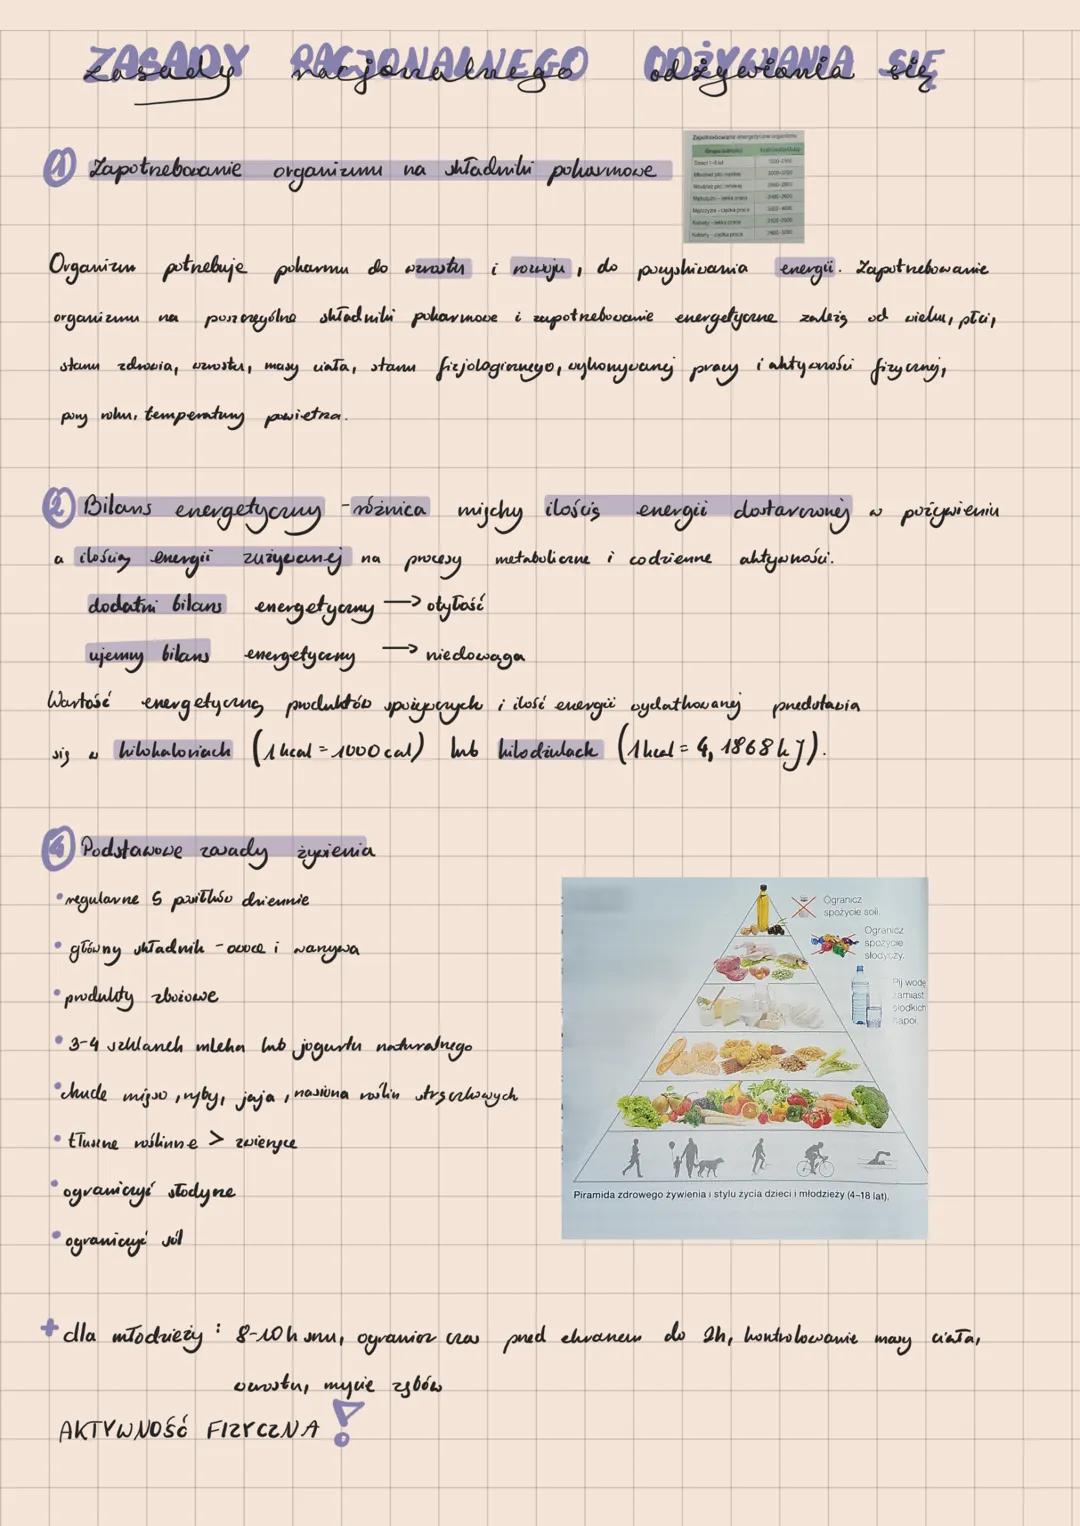 ZASADY RACJONALNEGO ODŻYWIANIA SIĘ
Zasady racjonalnego odżywiania się
1 Zapotrzebowanie organizmu na składniki pokarmowe
Zapotrzebowanie energetyczne organizmu
Organizm potrzebuje pokarmu do wzrostu i rozwoju, do pozyskiwania energii. Zapotrzebowanie
organizmu na poszczególne składniki pokarmowe i zapotrzebowanie energetyczne zależą od wieku, płci,
stanu zdrowia, wzrostu, masy ciała, stanu fizjologicznego, wykonywanej pracy i aktywności fizycznej,
pory roku, temperatury powietrza.
2 Bilans energetyczny - różnica między ilością energii dostarczonej w pożywieniu
a ilością energii zużywanej na procesy metaboliczne i codzienne aktywności.
dodatni bilans energetyczny → otyłość
ujemny bilans energetyczny → niedowaga
Wartość energetyczną produktów spożywczych i ilość energii wydatkowanej przedstawia
się w kilokaloriach (1 kcal = 1000 cal) lub kilodżulach (1 kcal = 4,1868 kJ).
Podstawowe zasady żywienia
• regularne 5 posiłków dziennie
• główny składnik - owoce i warzywa
• produkty zbożowe
• 3-4 szklanek mleka lub jogurtu naturalnego
• chude mięso, ryby, jaja, nasiona roślin strączkowych
• tłuszcze roślinne > zwierzęce
• ograniczyć słodycze
• ograniczyć sól
Ogranicz
spożycie soli.
Ogranicz
spożycie
słodyczy.
Pij wodę
zamiast
słodkich
napoi.
Piramida zdrowego żywienia i stylu życia dzieci i młodzieży (4–18 lat).
+ dla młodzieży: 8-10h snu, ogranicz czas przed ekranem do 2h, kontrolowanie masy ciała,
wzrostu, mycie zębów
AKTYWNOŚĆ FIZYCZNA !